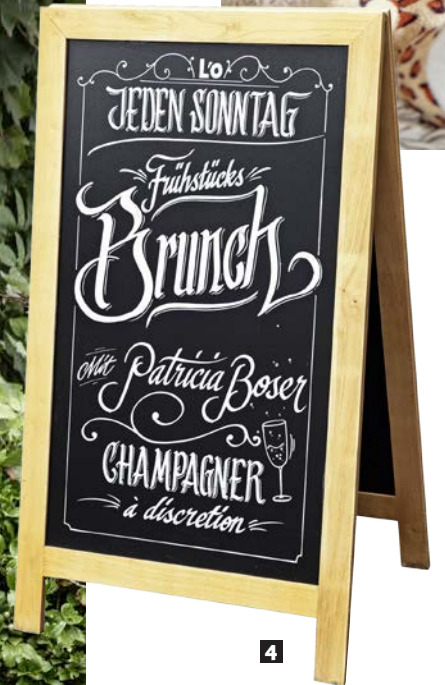 L'O
JEDEN SONNTAG
Frühstücks
Brunch
Mit Patricia Boser
CHAMPAGNER
à discretion
4